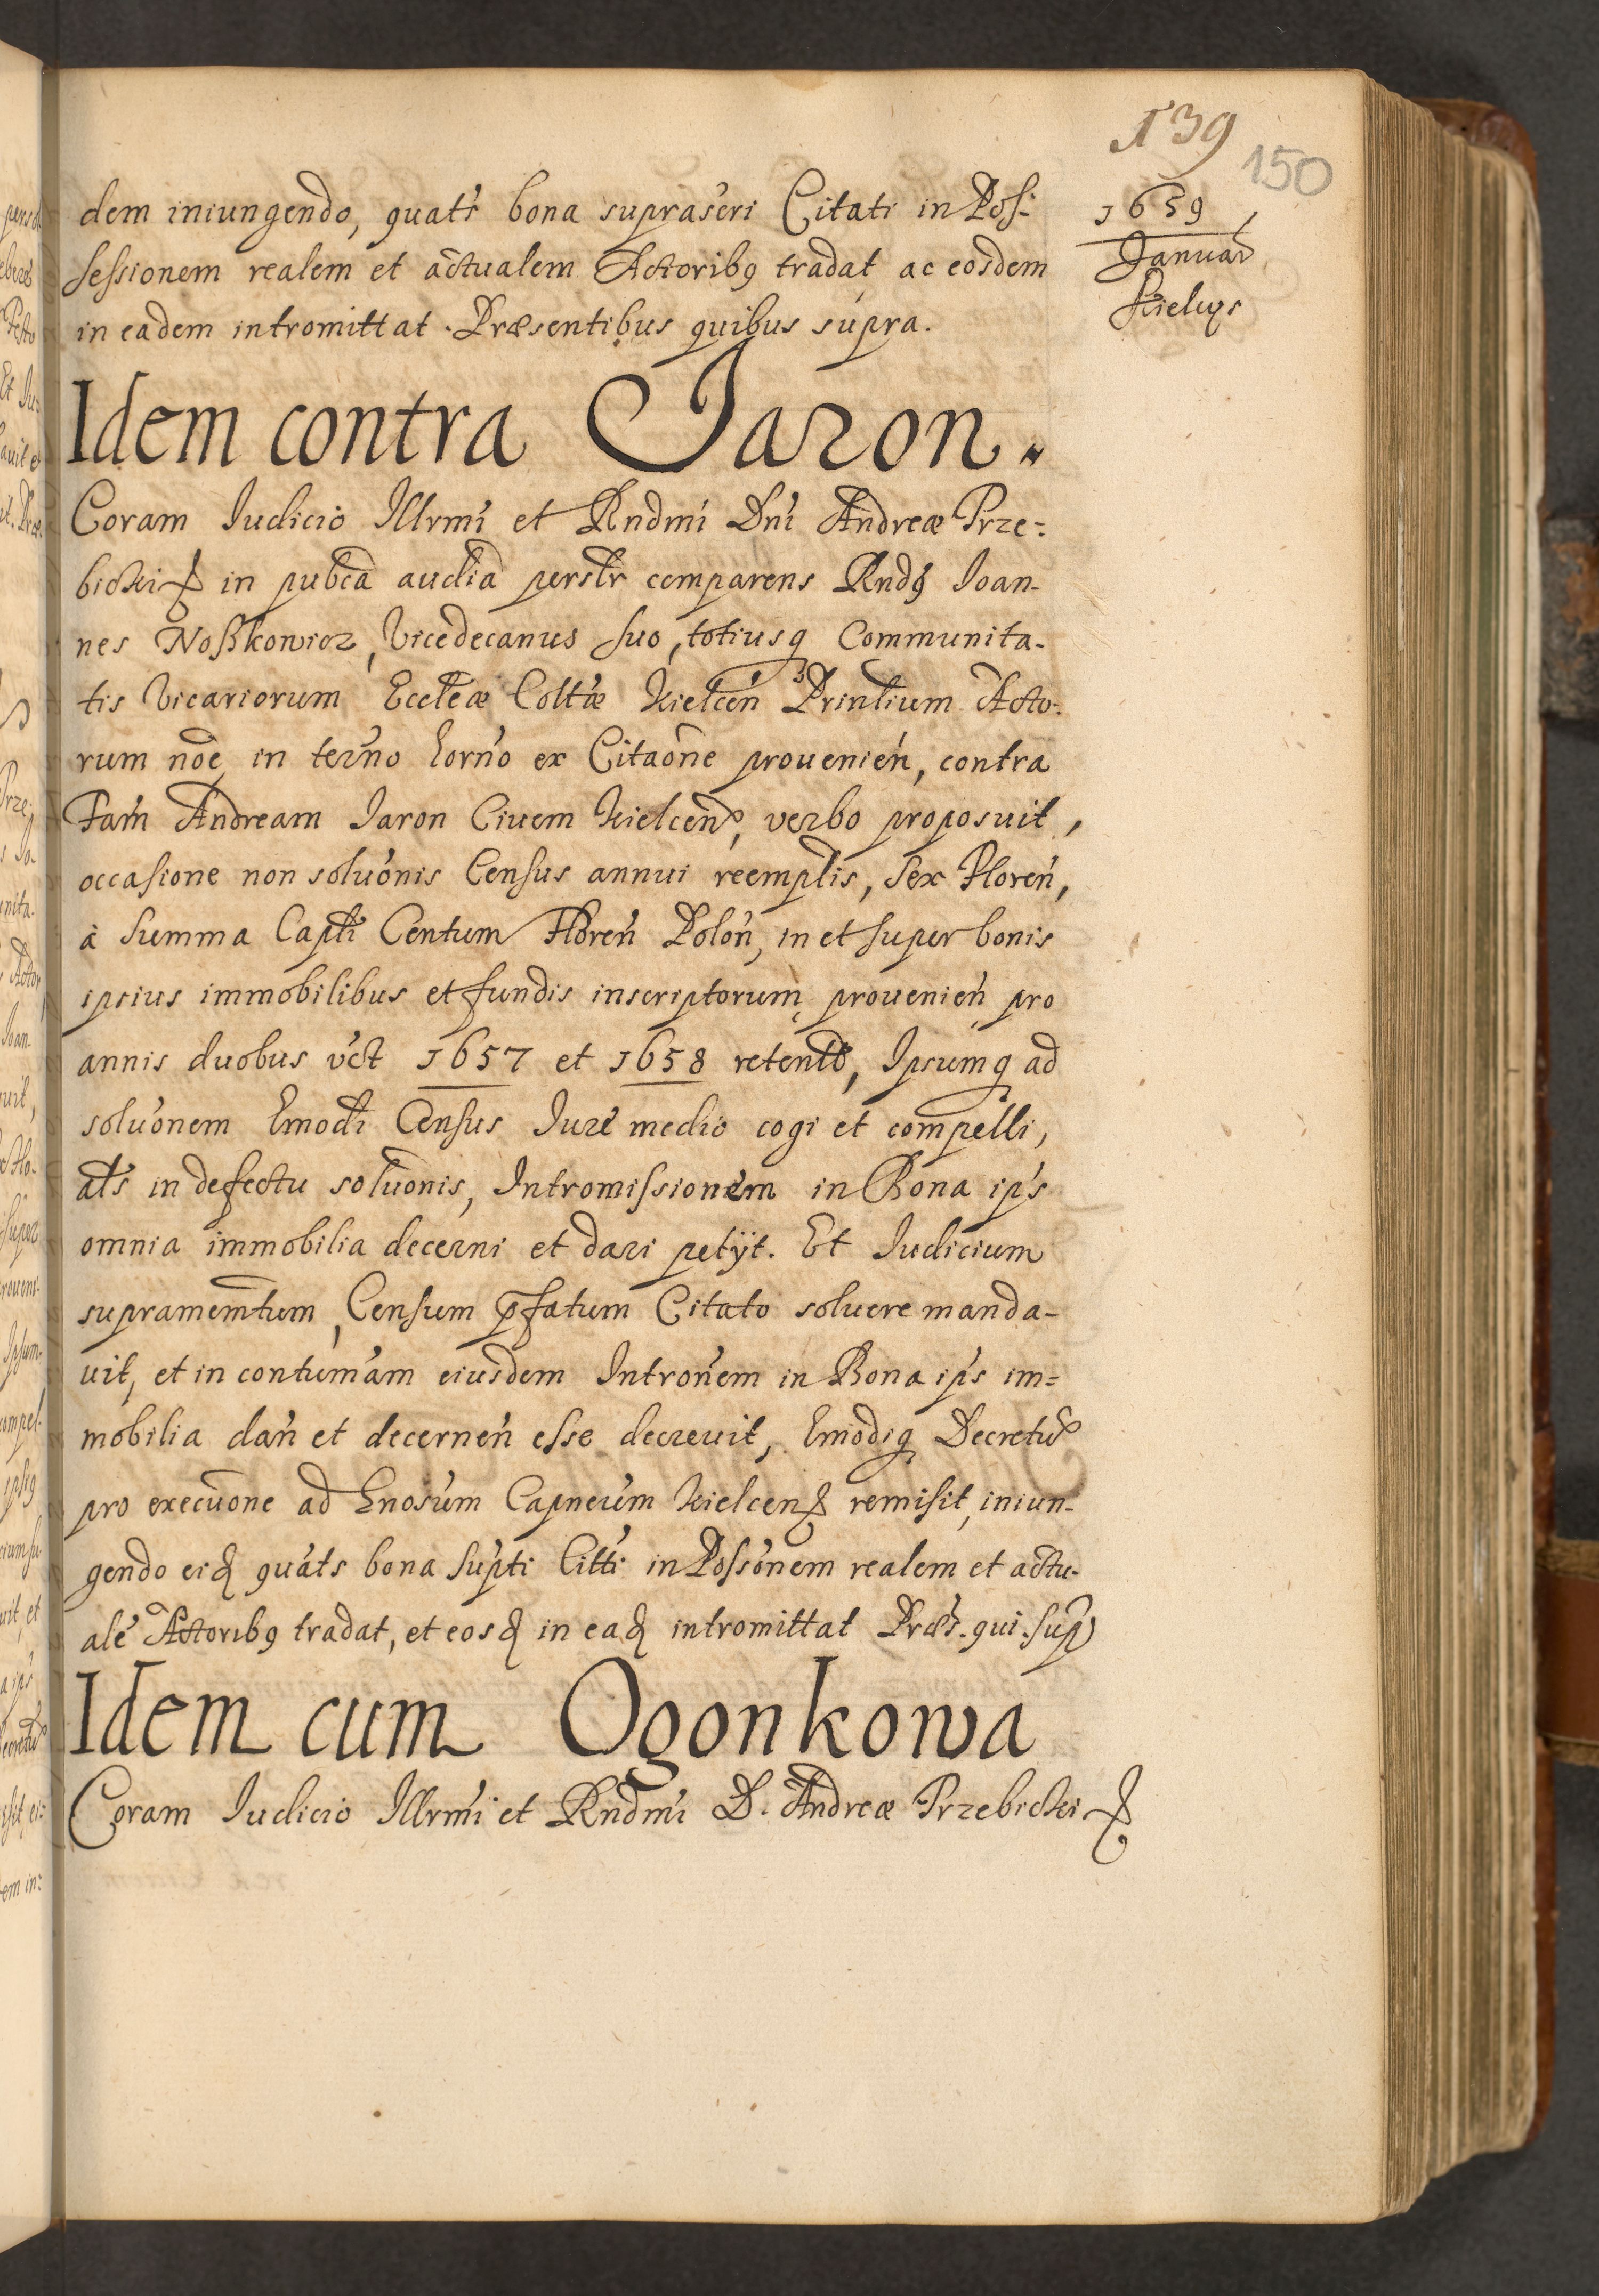 139
150
1659
Januar
Kielcys
dem iniungendo, quats bona suprascri Citati in Pos:
sessionem realem et actualem Actoribq tradat ac eosdem
in eadem intromittat. Præsentibus quibus supra.
Idem contra Jaron.
Coram Iudicio Illrmi et Rndmi Dni Andreæ Trze:
bicki in pubca audia perslr comparens Rndq Ioan-
nes Noskowicz, Vicedecanus suo, totiusq Communita-
tis Vicariorum Eccleæ Coltæ Kielcen Prinlium Acto:
rum noe in terno horno ex Citaone prouenien, contra
Fam Andream Iaron Ciuem Kielcen, verbo proposuit,
occasione non soluonis Census annui reemplis, Sex Floren,
à Summa Capli Centum Floren Polon, in et super bonis
ipsius immobilibus et fundis inscriptorum prouenien pro
annis duobus vct 1657 et 1658 retento, Ipsumq ad
soluonem Emodi Census Iure medio cogi et compelli,
als in defectu soluonis, Intromissionem in Bona ips
omnia immobilia decerni et dari petijt. Et Iudicium
supramemtum, Censum pfatum Citato soluere manda-
uit, et in contumam eiusdem Intronem in Bona ips im=
mobilia dan et decernen esse decreuit, Emodiq Decretu
pro execuone ad Gnosum Capneum Kielcen remisit, iniun-
gendo eid quats bona supti Citti in Possonem realem et actu-
ale Actoribq tradat, et eosd in ead intromittat Præs. qui. sup
Idem cum Ogonkowa
Coram Iudicio Illrmi et Rndmi D. Andreæ Trzebicki